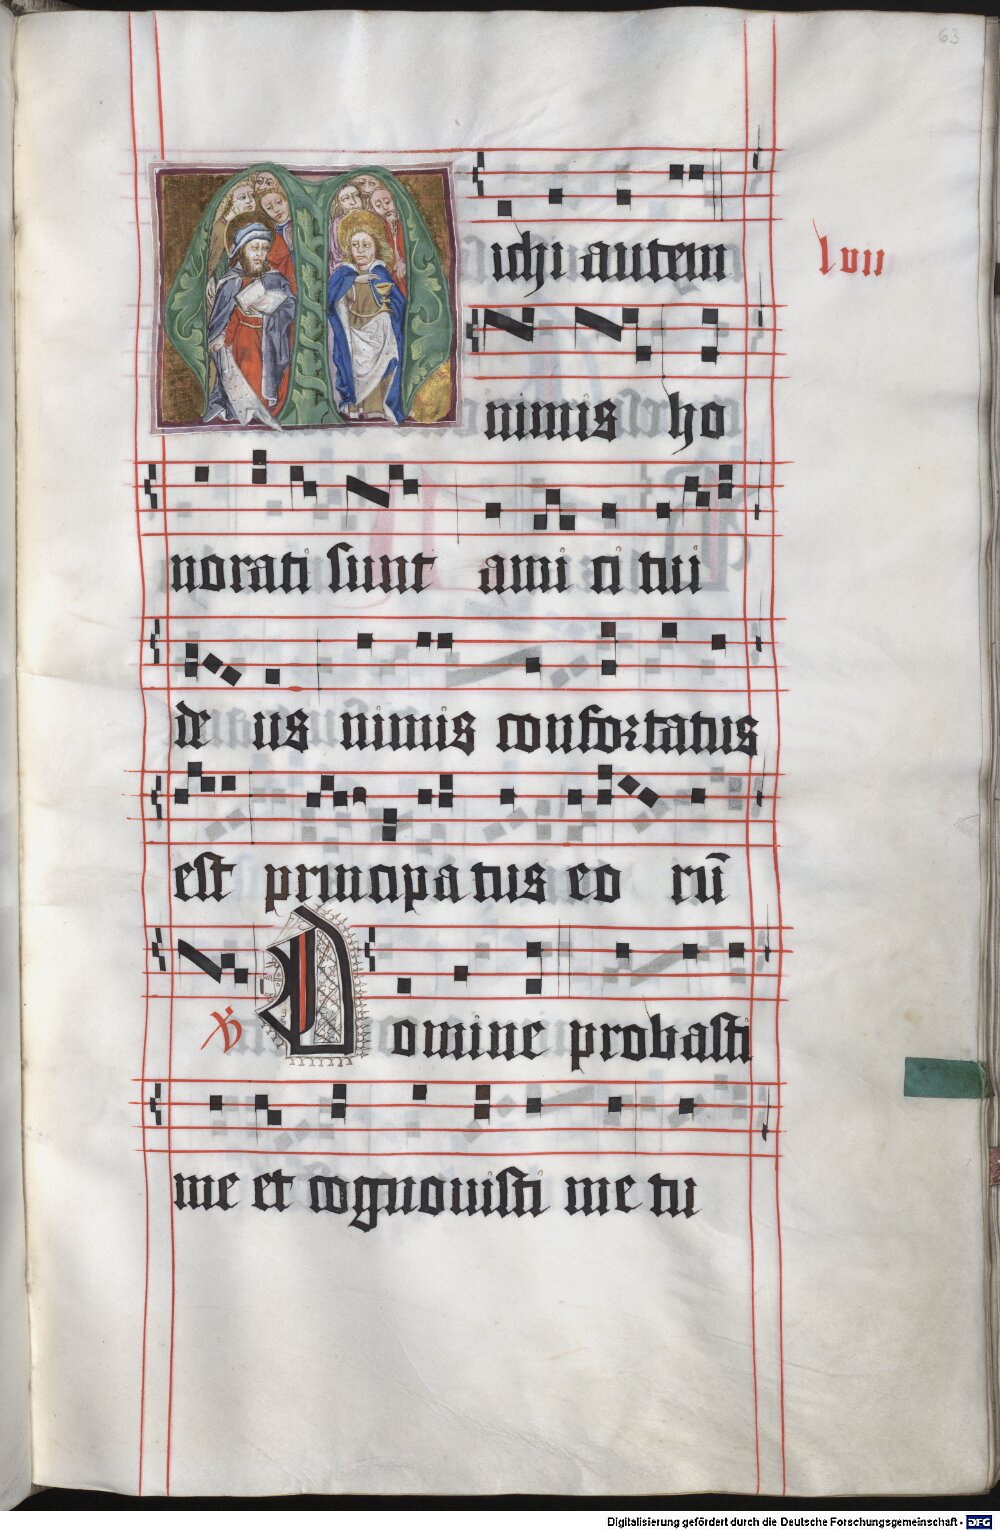 63
Michi autem
lvii
nimis ho
norati sunt ami ci tui
de us nimis confortatus
est principa tus eo rū
℣ Domine probasti
me et cognouisti me tu
Digitalisierung gefördert durch die Deutsche Forschungsgemeinschaft - DFG